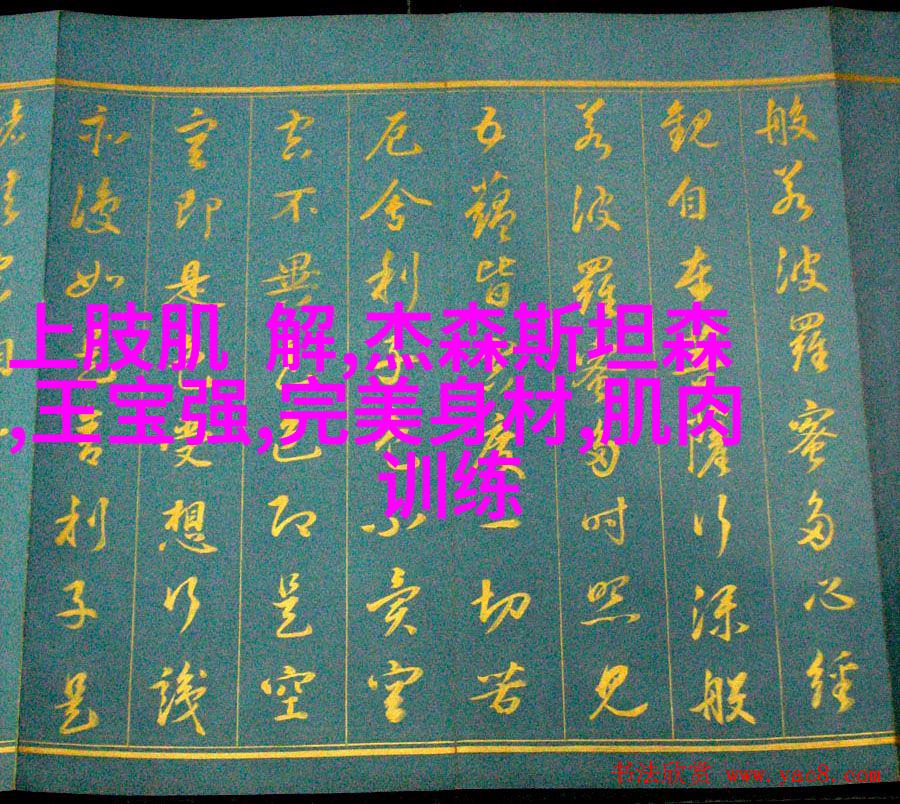 般若波羅蜜多心經
觀自在菩薩行深般
若波羅蜜多時照見
五蘊皆空度一切苦
厄舍利子色不異空
空不異色色即是空
空即是色受想行識
亦復如是舍利子是
上肢肌 解,杰森斯坦森
,王宝强,完美身材,肌肉
训练
书法欣赏 www.yac8.com